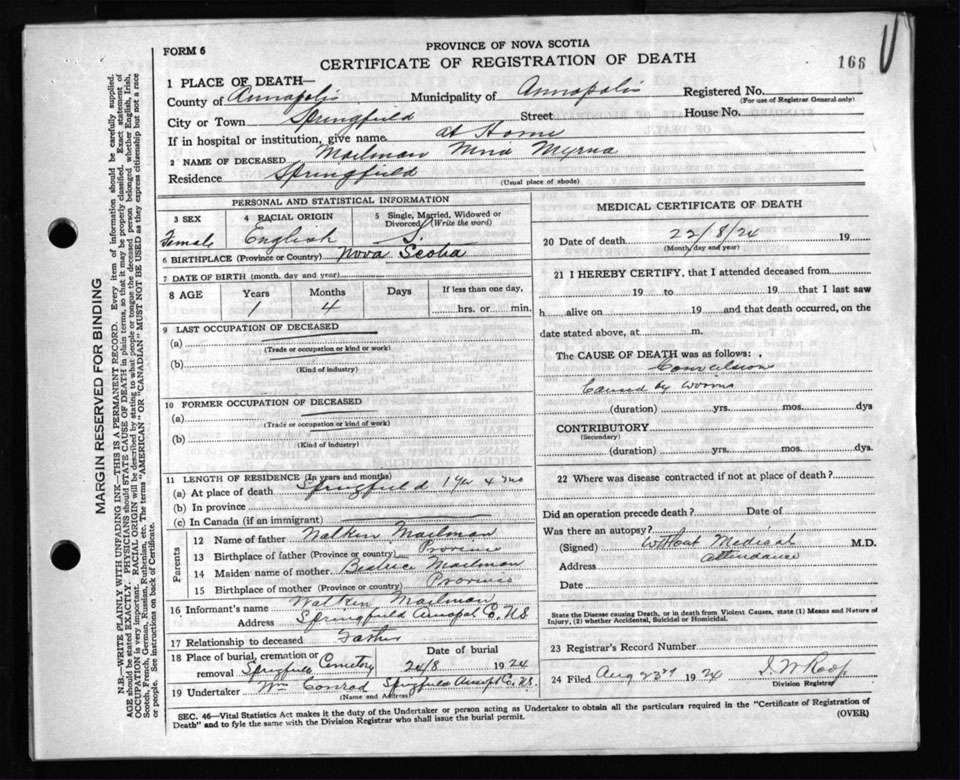 FORM 6
PROVINCE OF NOVA SCOTIA
CERTIFICATE OF REGISTRATION OF DEATH
166
1 PLACE OF DEATH—
County of Annapolis Municipality of Annapolis Registered No.
(For use of Registrar General only)
City or Town Springfield Street House No.
If in hospital or institution, give name at Home
2 NAME OF DECEASED Mailman Myrna
Residence Springfield
(Usual place of abode)
PERSONAL AND STATISTICAL INFORMATION
3 SEX Female
4 RACIAL ORIGIN English
5 Single, Married, Widowed or Divorced (Write the word) S.
6 BIRTHPLACE (Province or Country) Nova Scotia
7 DATE OF BIRTH (month, day and year)
8 AGE Years 1 Months 4 Days If less than one day, hrs. or min.
9 LAST OCCUPATION OF DECEASED
(a)
(Trade or occupation or kind or work)
(b)
(Kind of industry)
10 FORMER OCCUPATION OF DECEASED
(a)
(Trade or occupation or kind of work)
(b)
(Kind of industry)
11 LENGTH OF RESIDENCE (In years and months)
(a) At place of death Springfield 1 yr 4 mo
(b) In province
(c) In Canada (if an immigrant)
Parents
12 Name of father Mailman
13 Birthplace of father (Province or country) Province
14 Maiden name of mother Beatrice Mailman
15 Birthplace of mother (Province or country) Province
16 Informant's name Mailman
Address Springfield Annapl Co. N.S
17 Relationship to deceased Father
18 Place of burial, cremation or removal Springfield Cemetery Date of burial 24/8 1924
19 Undertaker Wm Conrad Springfield Annapl Co. N.S.
(Name and Address)
MEDICAL CERTIFICATE OF DEATH
20 Date of death 22/8/24 19
(Month, day and year)
21 I HEREBY CERTIFY, that I attended deceased from
19 to 19 that I last saw
h alive on 19 and that death occurred, on the
date stated above, at m.
The CAUSE OF DEATH was as follows:
Convulsions
Caused by worms
(duration) yrs. mos. dys
CONTRIBUTORY
(Secondary)
(duration) yrs. mos. dys
22 Where was disease contracted if not at place of death?
Did an operation precede death? Date of
Was there an autopsy?
(Signed) Without Medical M.D.
Address attendance
Date
State the Disease causing Death, or in death from Violent Causes, state (1) Means and Nature of
Injury, (2) whether Accidental, Suicidal or Homicidal.
23 Registrar's Record Number
24 Filed Aug 23rd 1924
Division Registrar
SEC. 46—Vital Statistics Act makes it the duty of the Undertaker or person acting as Undertaker to obtain all the particulars required in the "Certificate of Registration of
Death" and to fyle the same with the Division Registrar who shall issue the burial permit.
(OVER)
MARGIN RESERVED FOR BINDING
N.B.—WRITE PLAINLY WITH UNFADING INK—THIS IS A PERMANENT RECORD. Every item of information should be carefully supplied.
AGE should be stated EXACTLY. PHYSICIANS should STATE CAUSE OF DEATH in plain terms, so that it may be properly classified. Exact statement of
OCCUPATION is very important. RACIAL ORIGIN will be described by stating to what people or tongue the deceased person belonged whether English, Irish,
Scotch, French, German, Russian, Ruthenian, etc. The terms "AMERICAN" OR "CANADIAN" MUST NOT BE USED as they express citizenship but not a race
or people. See instructions on back of Certificate.